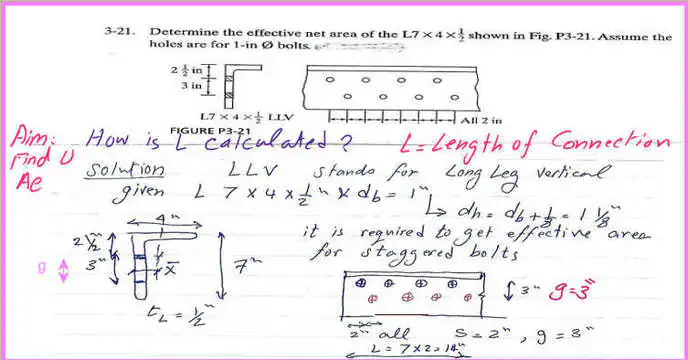 3-21. Determine the effective net area of the L7 × 4 × 1/2 shown in Fig. P3-21. Assume the
holes are for 1-in Ø bolts.
2 1/2 in
3 in
L7 × 4 × 1/2 LLV
All 2 in
FIGURE P3-21
Aim:
Find U
Ae
How is L calculated?
L = Length of Connection
Solution
LLV stands for Long Leg Vertical
given L 7 x 4 x 1/2" & db = 1"
↳ dh = db + 1/8 = 1 1/8"
it is required to get effective area
for staggered bolts
4"
2 1/2"
3"
g
x̄
7"
tL = 1/2"
3"
g=3"
2" all
S = 2", g = 3"
L = 7x2 = 14"